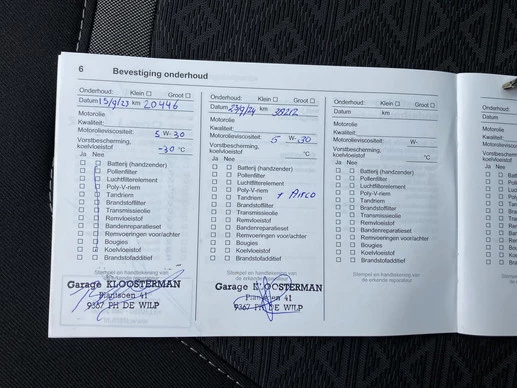 6 Bevestiging onderhoud
Onderhoud: Klein ☐ Groot ☐
Datum 15/9/23 km 20446
Motorolie
Kwaliteit:
Motorolieviscositeit: 5 W-30
Vorstbescherming,
koelvloeistof -30 °C
Ja Nee
☐ ☐ Batterij (handzender)
☐ ☐ Pollenfilter
☐ ☐ Luchtfilterelement
☐ ☐ Poly-V-riem
☐ ☐ Tandriem
☐ ☐ Brandstoffilter
☐ ☐ Transmissieolie
☐ ☐ Remvloeistof
☐ ☐ Bandenreparatieset
☐ ☐ Remvoeringen voor/achter
☐ ☐ Bougies
☐ ☐ Koelvloeistof
☐ ☐ Brandstofadditief
Stempel en handtekening van
de erkende reparateur
Garage KLOOSTERMAN
Plantsoen 41
9367 PH DE WILP
Onderhoud: Klein ☐ Groot ☐
Datum 23/9/24 km
Motorolie
Kwaliteit:
Motorolieviscositeit: 5 W-30
Vorstbescherming,
koelvloeistof °C
Ja Nee
☐ ☐ Batterij (handzender)
☐ ☐ Pollenfilter
☐ ☐ Luchtfilterelement
☐ ☐ Poly-V-riem
☐ ☐ Tandriem + Airco
☐ ☐ Brandstoffilter
☐ ☐ Transmissieolie
☐ ☐ Remvloeistof
☐ ☐ Bandenreparatieset
☐ ☐ Remvoeringen voor/achter
☐ ☐ Bougies
☐ ☐ Koelvloeistof
☐ ☐ Brandstofadditief
Stempel en handtekening van
de erkende reparateur
Garage KLOOSTERMAN
Plantsoen 41
9367 PH DE WILP
Onderhoud: Klein ☐ Groot ☐
Datum km
Motorolie
Kwaliteit:
Motorolieviscositeit: W-
Vorstbescherming,
koelvloeistof °C
Ja Nee
☐ ☐ Batterij (handzender)
☐ ☐ Pollenfilter
☐ ☐ Luchtfilterelement
☐ ☐ Poly-V-riem
☐ ☐ Tandriem
☐ ☐ Brandstoffilter
☐ ☐ Transmissieolie
☐ ☐ Remvloeistof
☐ ☐ Bandenreparatieset
☐ ☐ Remvoeringen voor/achter
☐ ☐ Bougies
☐ ☐ Koelvloeistof
☐ ☐ Brandstofadditief
Stempel en handtekening van
de erkende reparateur
Onderhoud:
Datum
Motorolie
Kwaliteit:
Ja Nee